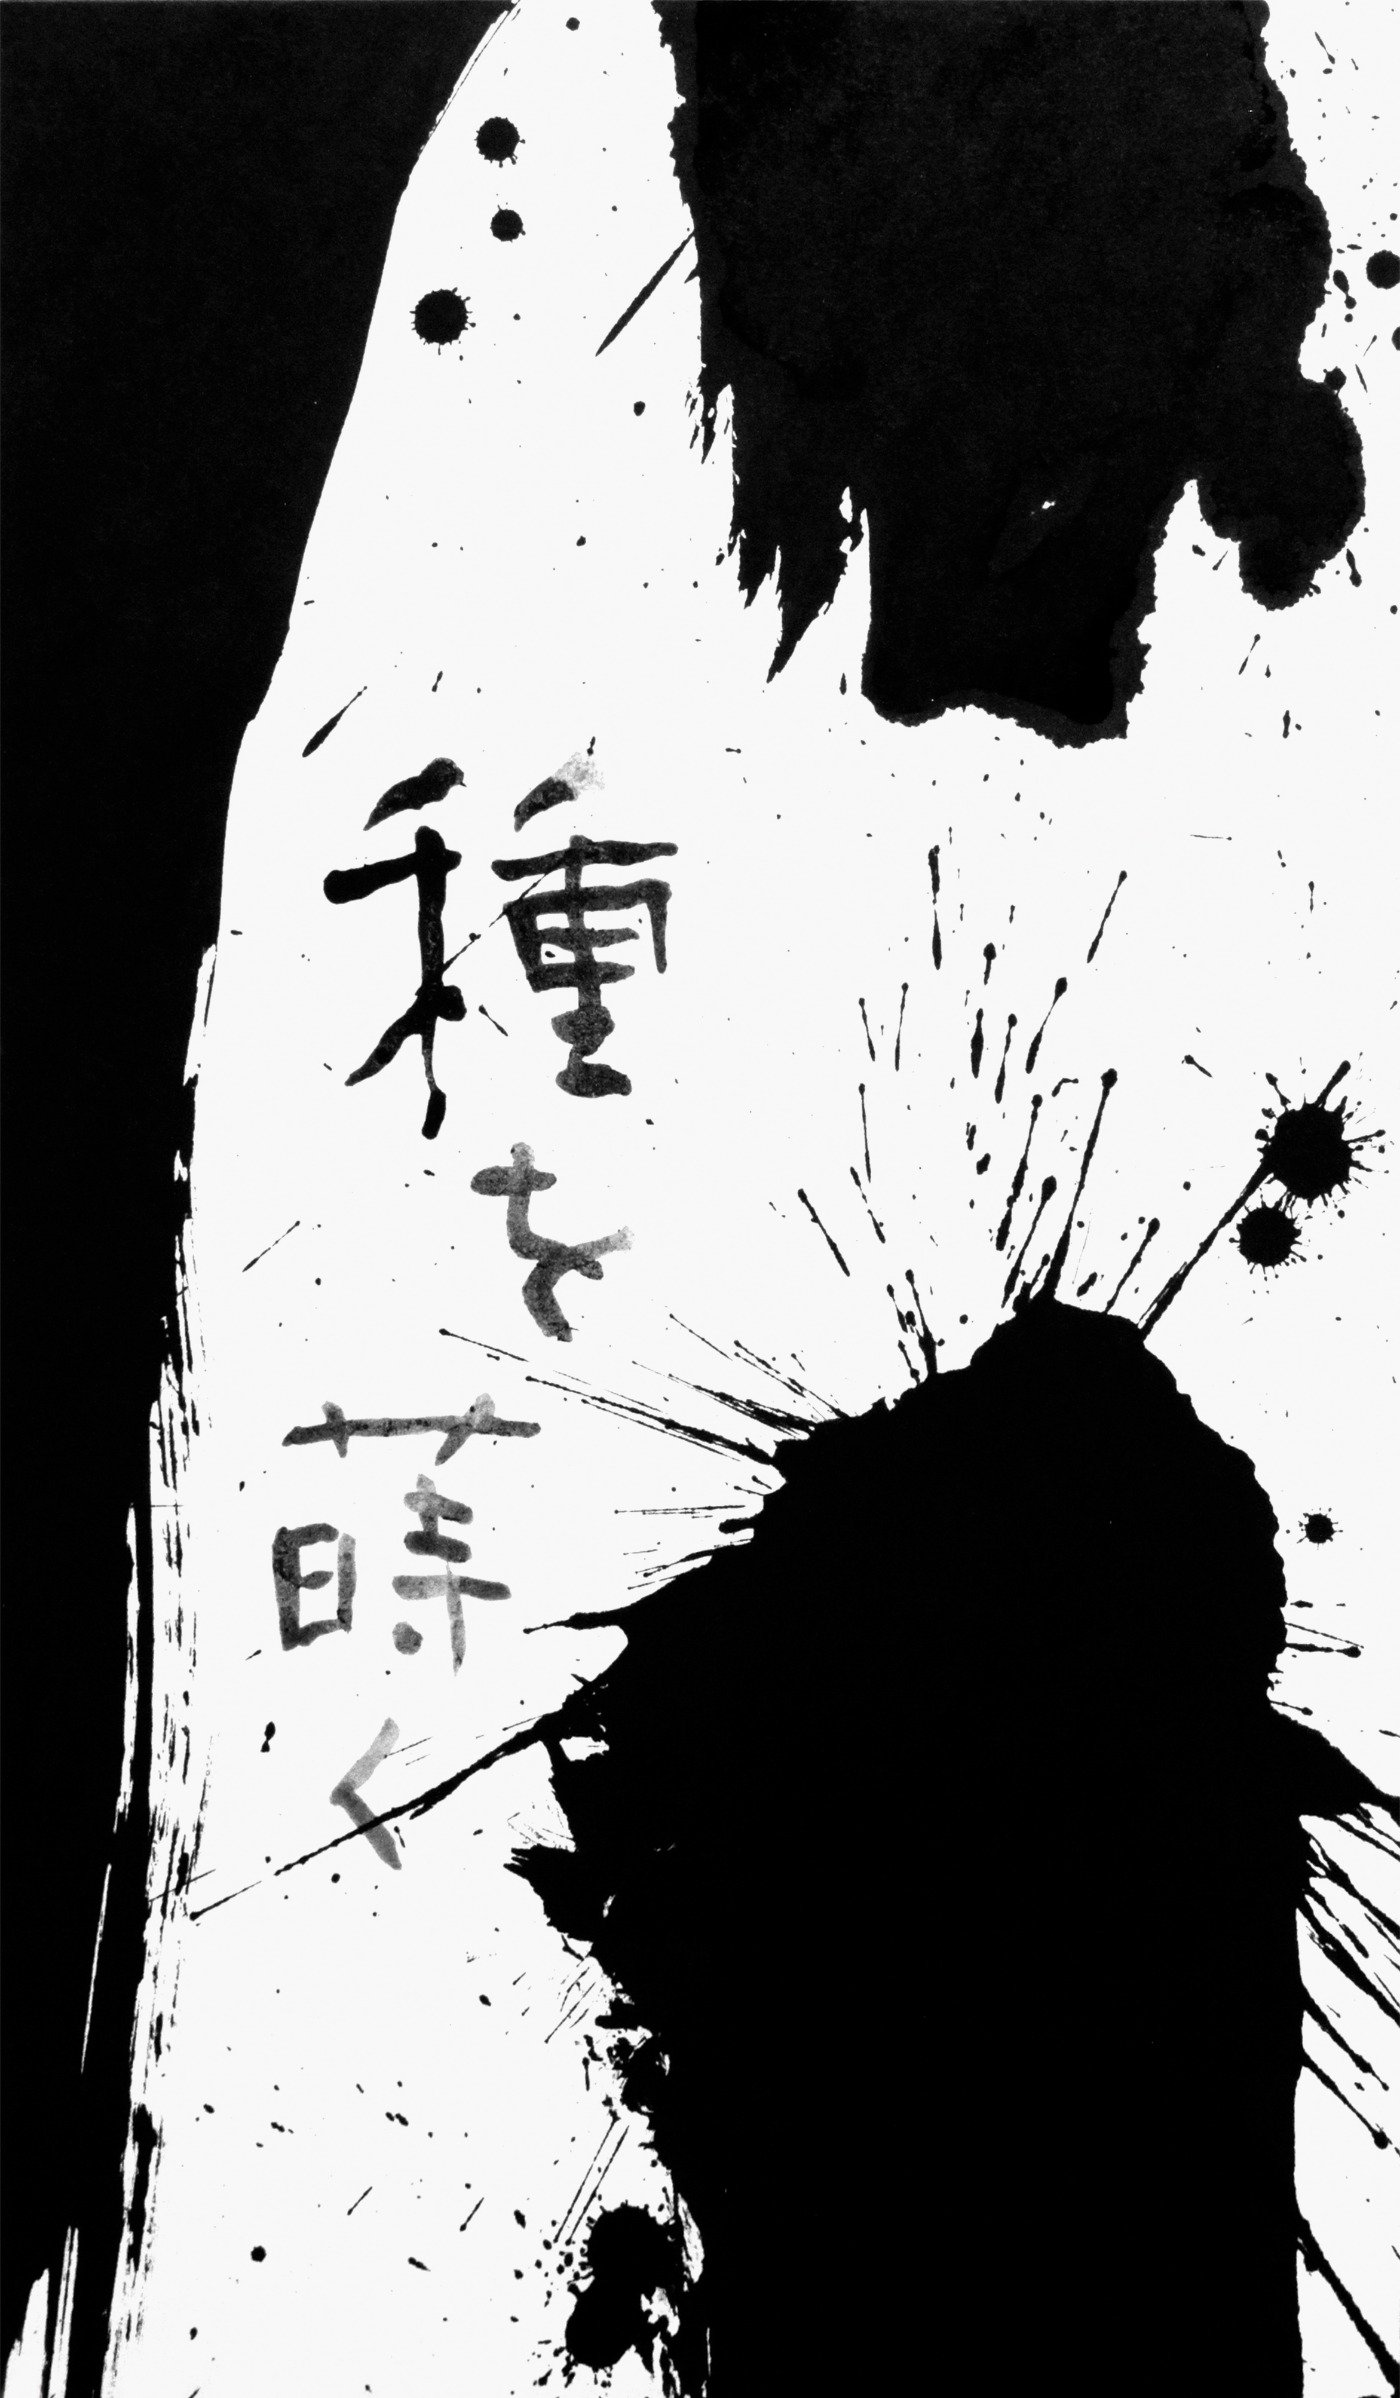 種を蒔く